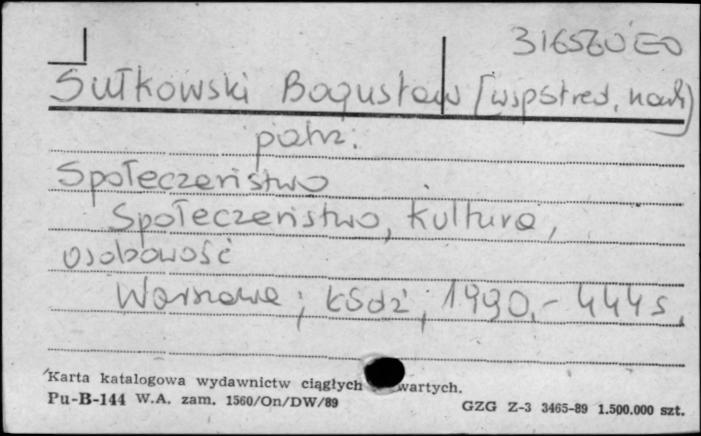 316560 EO
Sułkowski Bogusław [współred. nauk]
patrz:
Społeczeństwo
Społeczeństwo, kultura,
osobowość
Warszawa; Łódź, 1990.- 444 s.
Karta katalogowa wydawnictw ciągłych wartych.
Pu-B-144 W.A. zam. 1560/On/DW/89
GZG Z-3 3465-89 1.500.000 szt.